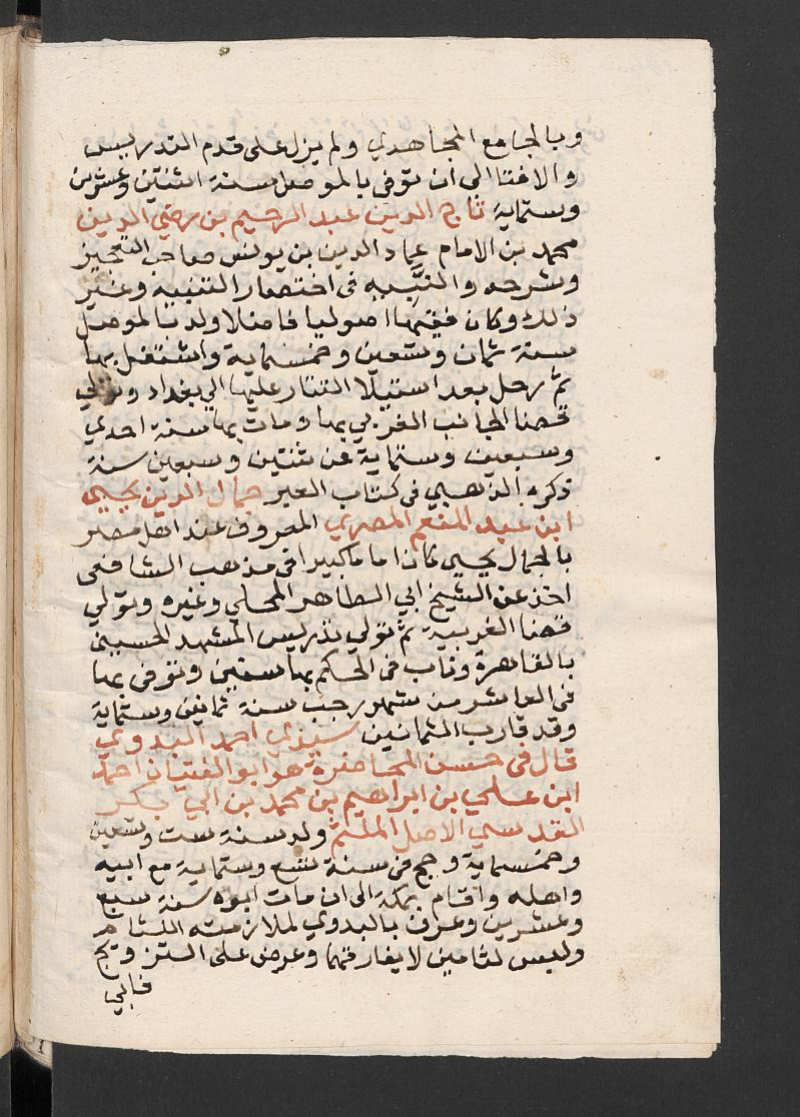 وبالجامع المجاهدي ولم يزل على قدم التدريس
والافتا الى ان توفى بالموصل سنة اثنتين وعشرين
وستماية تاج الدين عبد الرحيم بن رضي الدين
محمد بن الامام عماد الدين بن يونس صاحب التعجيز
وشرحه والتنبيه فى اختصار التنبيه وغير
ذلك وكان فقيها اصوليا فاضلا ولد بالموصل
سنة ثمان وتسعين وخمسماية واشتغل بها
ثم رحل بعد استيلا التتار عليها الي بغداد وتولي
قضا الجانب الغربي بها ومات بها سنة احدي
وسبعين وستماية عن ثنتين وسبعين سنة
ذكره الذهبي فى كتاب العبر جمال الدين يحيى
ابن عبد المنعم المصري المعروف عند اهل مصر
بالجمال يحيي كان اماما كبيرا فى مذهب الشافعى
اخذ عن الشيخ ابي الطاهر المحلي وغيره وتولي
قضا الغربية ثم تولي تدريس المشهد الحسينى
بالقاهرة وناب فى الحكم بها سنين وتوفى بها
فى العاشر من شهر رجب سنة ثمانين وستماية
وقد قارب الثمانين سيدي احمد البدوي
قال فى حسن المحاضرة هو ابو الفتيان احمد
ابن علي بن ابراهيم بن محمد بن ابي بكر
القدسي الاصل الملثم ولد سنة ست وتسعين
وخمسماية وحج فى سنة تسع وستماية مع ابيه
واهله واقام بمكة الى ان مات ابوه سنة سبع
وعشرين وعرف بالبدوي لملازمته اللثام
ولبس لثامين لا يفارقهما وعرض على التز ويج
فابي